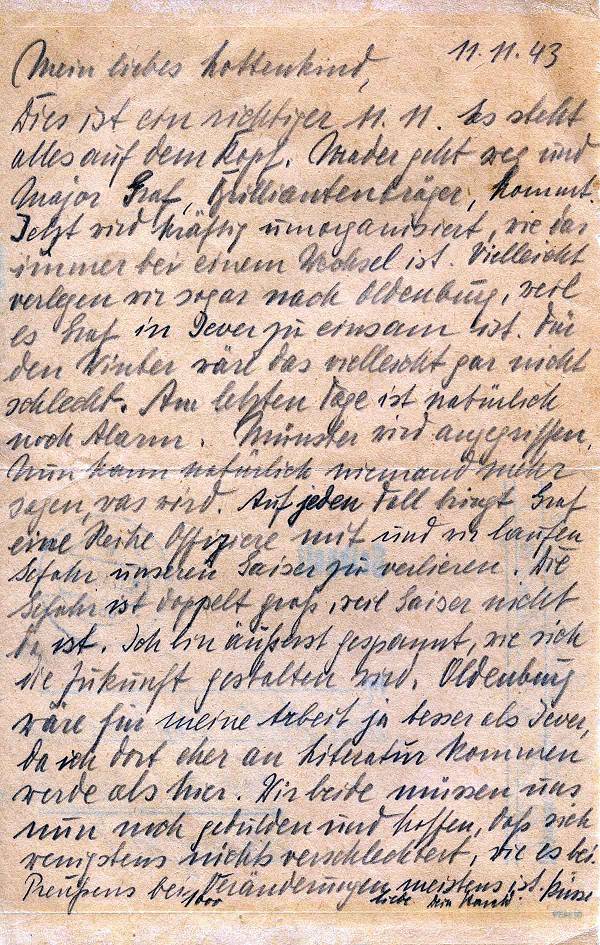 11.11.43
Mein liebes Lottenkind,
Dies ist ein richtiger 11. 11. Es steht
alles auf dem Kopf. Mader geht weg und
Major Graf, Brilliantenträger, kommt.
Jetzt wird kräftig umorganisiert, wie das
immer bei einem Wechsel ist. Vielleicht
verlegen wir sogar nach Oldenburg, weil
es Graf in Jever zu einsam ist. Für
den Winter wäre das vielleicht gar nicht
schlecht. Am letzten Tage ist natürlich
noch Alarm. Münster wird angegriffen,
Nun kann natürlich niemand mehr
sagen, was wird. Auf jeden Fall bringt Graf
eine Reihe Offiziere mit und wir laufen
Gefahr unseren Gaiser zu verlieren. Die
Gefahr ist doppelt groß, weil Gaiser nicht
da ist. Ich bin äußerst gespannt, wie sich
die Zukunft gestalten wird. Oldenburg
wäre für meine Arbeit ja besser als Jever,
da ich dort eher an Literatur kommen
werde als hier. Wir beide müssen uns
nun noch gedulden und hoffen, daß sich
wenigstens nichts verschlechtert, wie es bei
Preußens bei Veränderungen meistens ist.
1000 liebe Küsse Dein